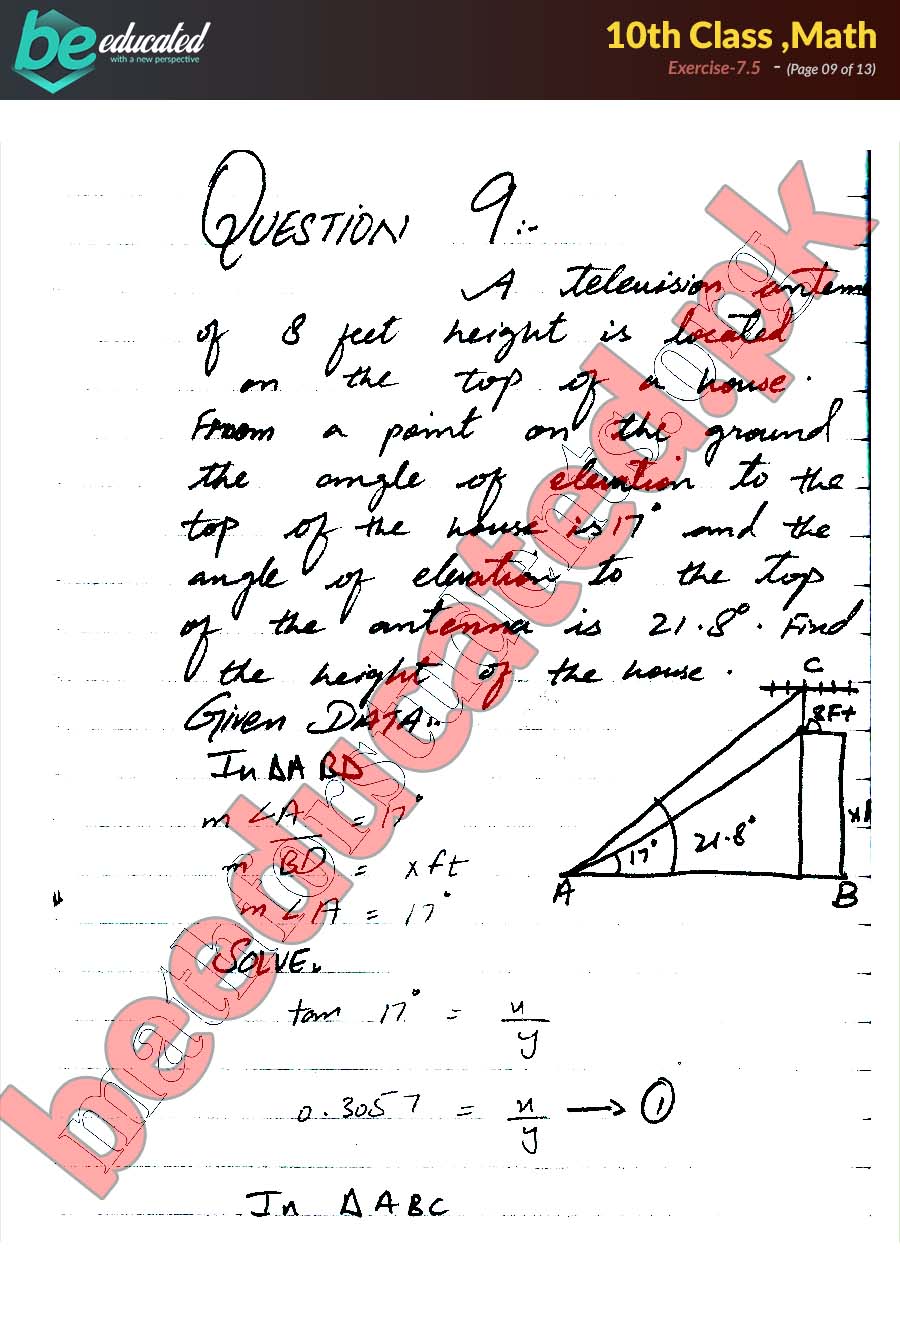 be educated
with a new perspective
10th Class ,Math
Exercise-7.5 - (Page 09 of 13)
QUESTION 9:-
A television antenn
of 8 feet height is located
on the top of a house.
From a point on the ground
the angle of elevation to the
top of the house is 17° and the
angle of elevation to the top
of the antenna is 21.8°. Find
the height of the house.
C
8Ft
17°
21.8°
A
B
GIVEN DATA:-
In ΔABD
m∠A = 17°
m BD = x ft
m∠A = 17°
SOLVE.
tan 17° = x/y
0.3057 = x/y → ①
In ΔABC
beeducated.pk